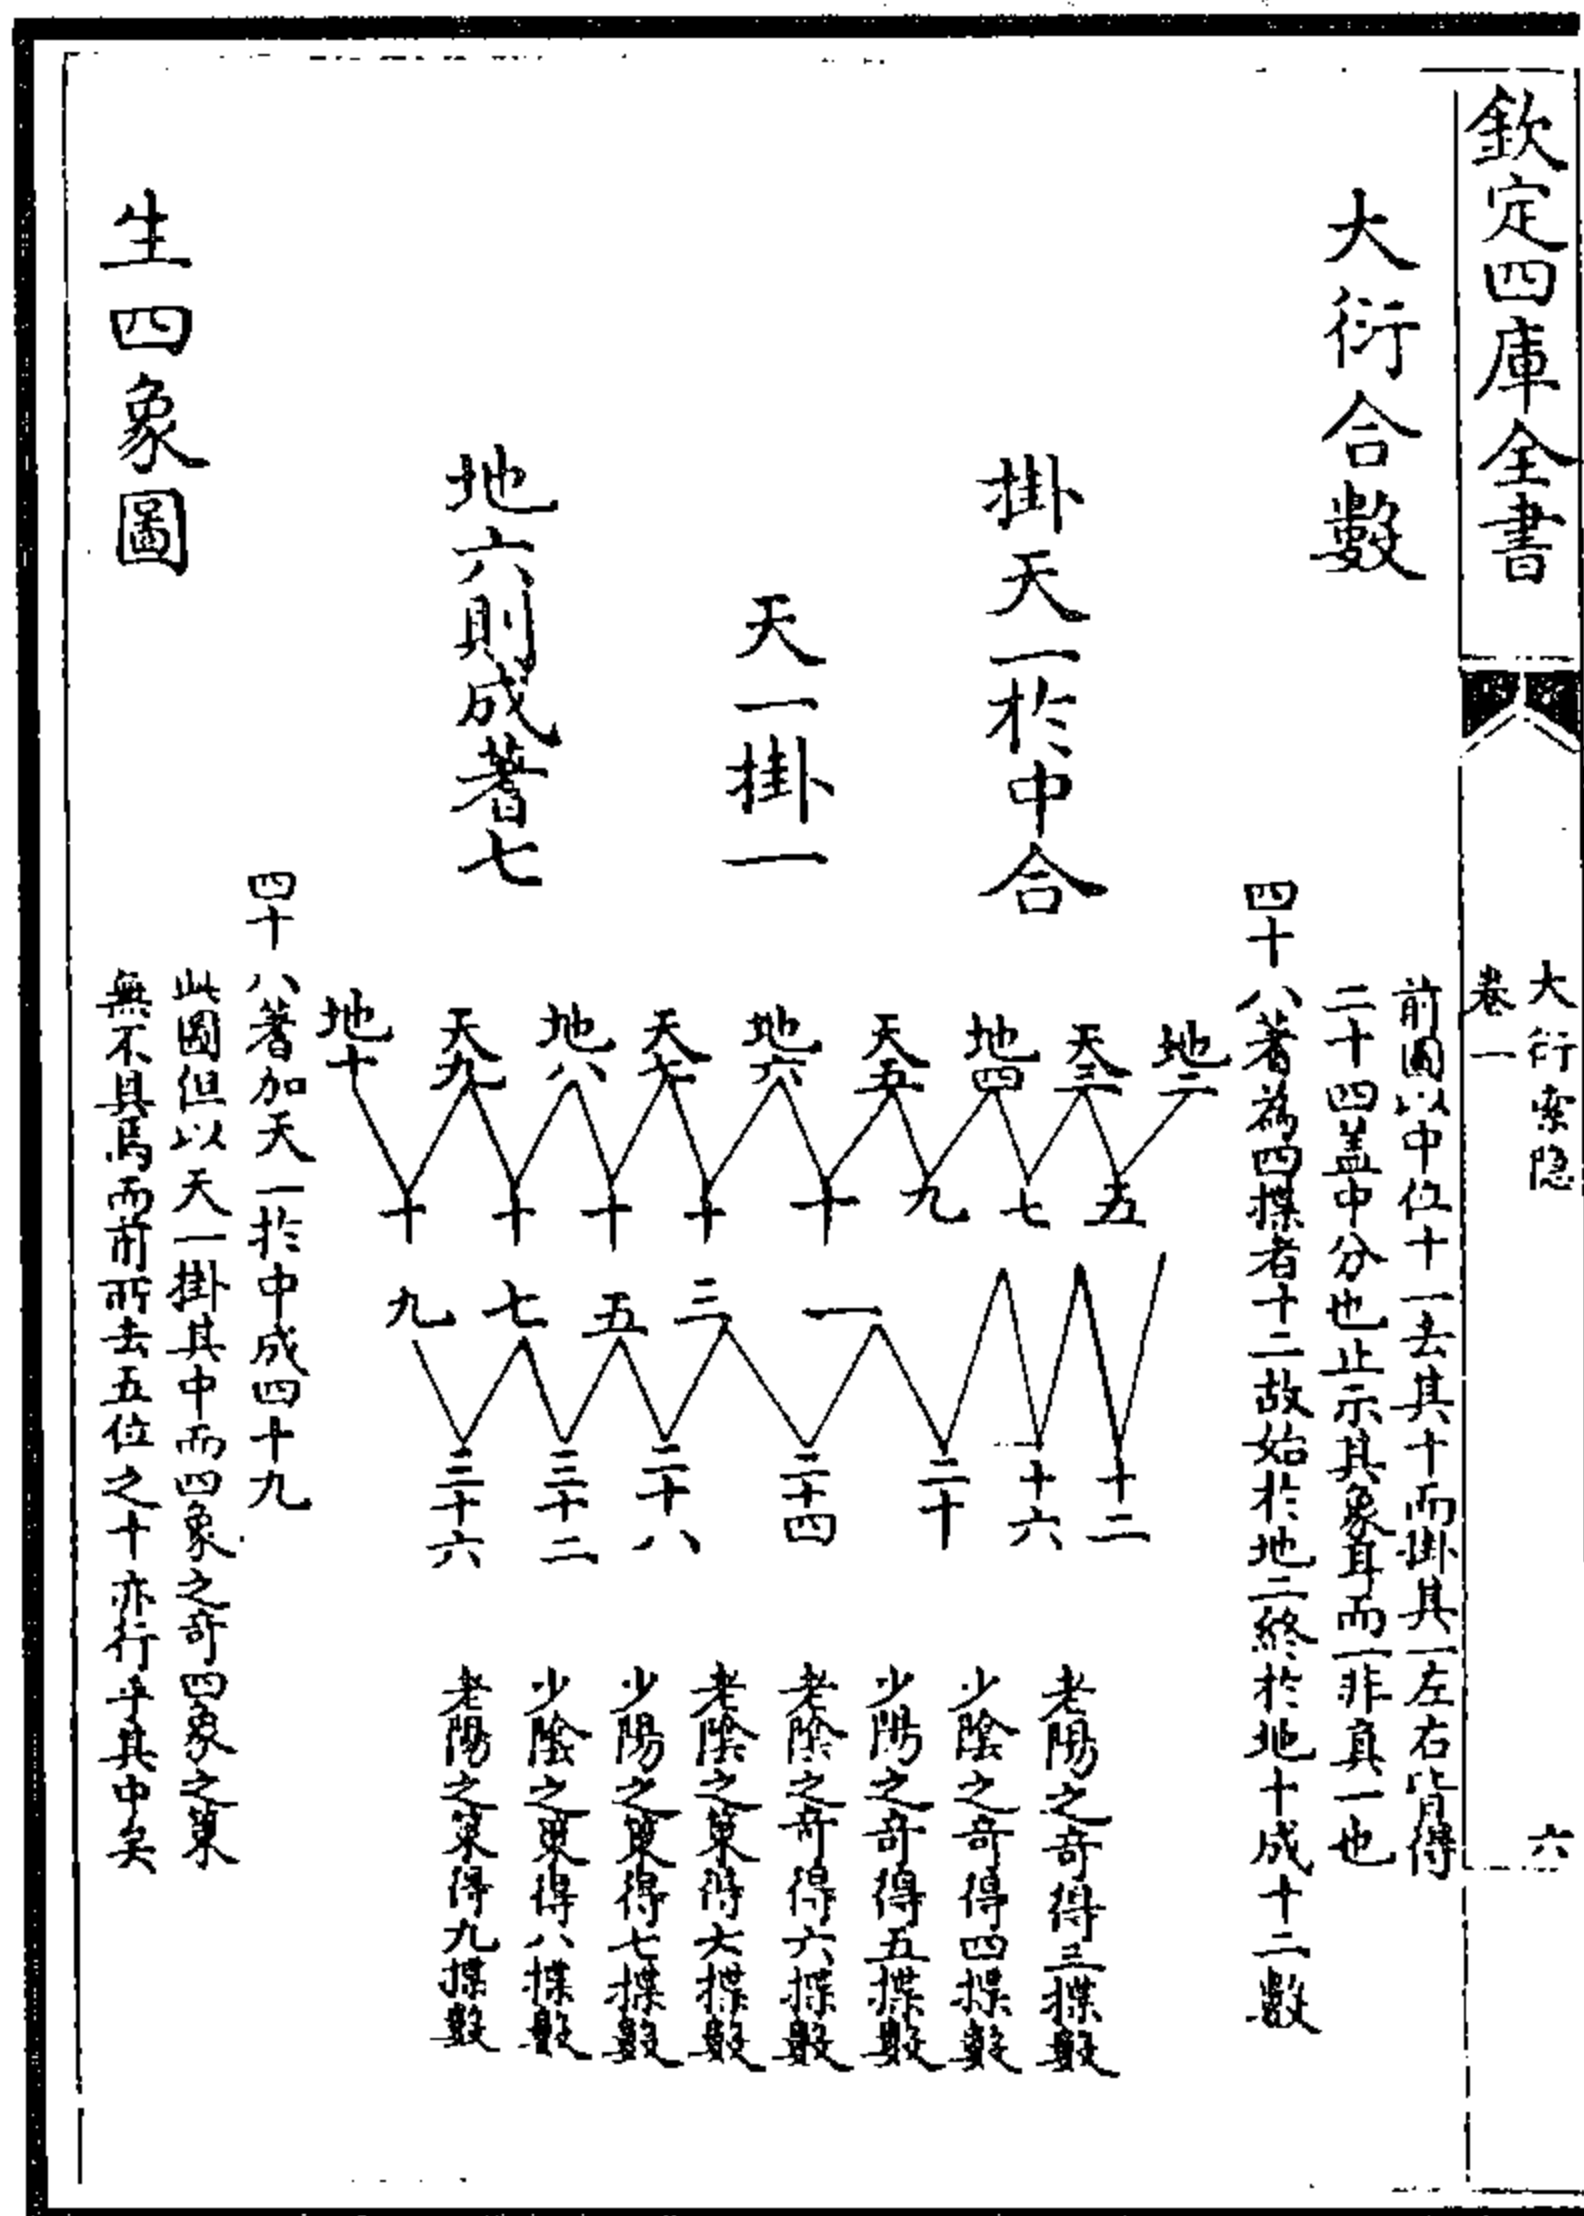 欽定四庫全書
大衍索隱
卷一
六
前圖以中位十一去其十而掛其一左右皆得
二十四蓋中分也止示其象耳而一非真一也
大衍合數
四十八蓍為四揲者十二故始於地二終於地十成十二數
掛天一於中合
天一掛一
地六則成蓍七
地二
天三
地四
天五
地六
天七
地八
天九
地十
五
七
九
十一
十三
十五
十七
十九
十二
十六
二十
二十四
二十八
三十二
三十六
老陽之奇得三揲數
少陰之奇得四揲數
少陽之奇得五揲數
老陰之奇得六揲數
老陰之策得六揲數
少陽之策得七揲數
少陰之策得八揲數
老陽之策得九揲數
四十八蓍加天一於中成四十九
此圖但以天一掛其中而四象之奇四象之策
無不具焉而前所去五位之十亦行乎其中矣
生四象圖